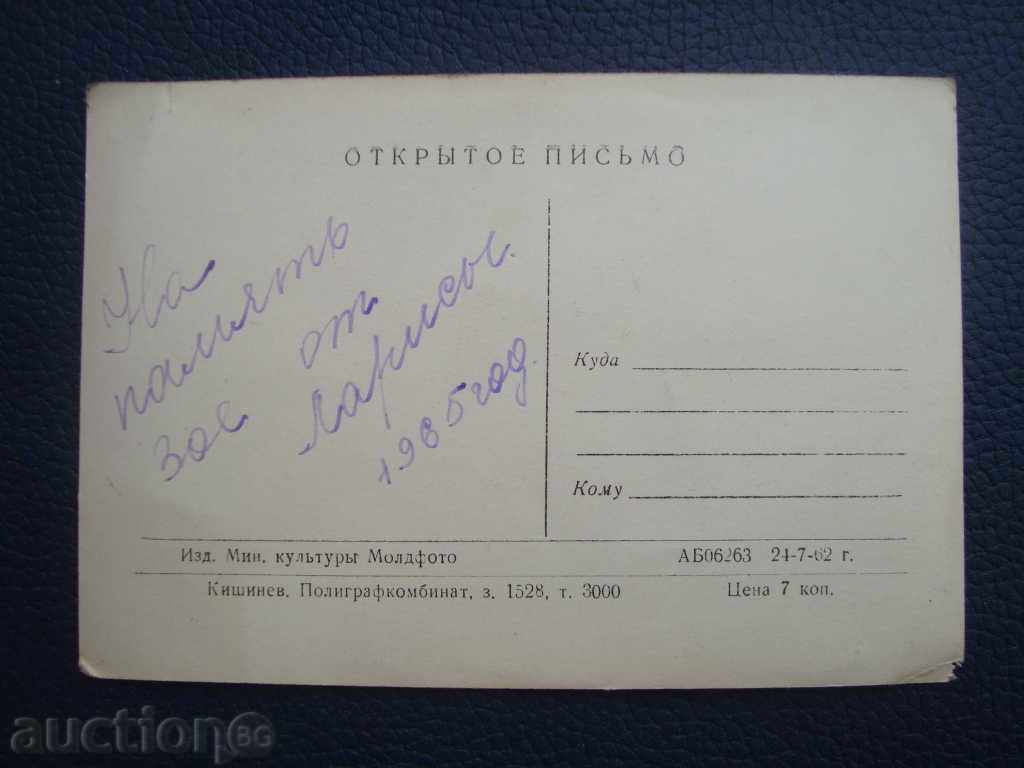 ОТКРЫТОЕ ПИСЬМО
На
память
Зое от
Ларисы.
1965 год.
Куда
Кому
Изд. Мин. культуры Молдфото АБ06263 24-7-62 г.
Кишинев. Полиграфкомбинат, з. 1528, т. 3000 Цена 7 коп.
auction BG